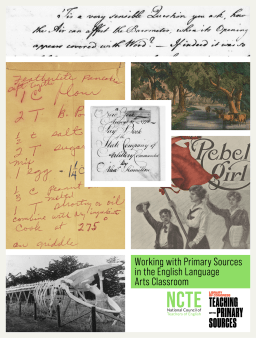 'Tis a very sensible Question you ask, how
the Air can affect the Barometer, when its Opening
appears covered with Wood? — If indeed it was so
1 C flour
2 T B. Po
1 t salt
2 T sugar
mix
1 egg - 1¼ c
1 C
1 T
combine with dry ingredients
Cook at 275°
on griddle
New York
Pay Book
of the
State Company of
Artillery commanded
by
Alex Hamilton
Rebel
Girl
Working with Primary Sources
in the English Language
Arts Classroom
NCTE
National Council of
Teachers of English
LIBRARY OF CONGRESS
TEACHING
with PRIMARY
SOURCES